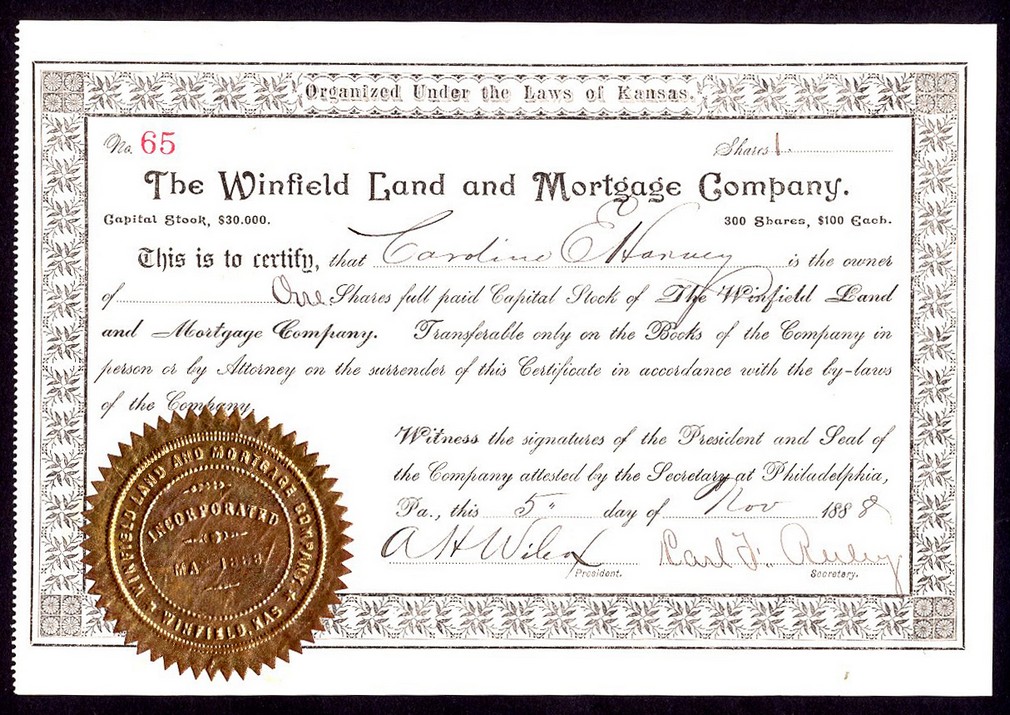 Organized Under the Laws of Kansas.
No. 65 Shares 1
The Winfield Land and Mortgage Company.
Capital Stock, $30.000. 300 Shares, $100 Each.
This is to certify, that Caroline E Harvey is the owner
of One Shares full paid Capital Stock of The Winfield Land
and Mortgage Company. Transferable only on the Books of the Company in
person or by Attorney on the surrender of this Certificate in accordance with the by-laws
of the Company.
Witness the signatures of the President and Seal of
the Company attested by the Secretary at Philadelphia,
Pa., this 5" day of Nov 1888
A H Wilcox Carl F.
President. Secretary.
WINFIELD LAND AND MORTGAGE COMPANY
INCORPORATED
WINFIELD KAS